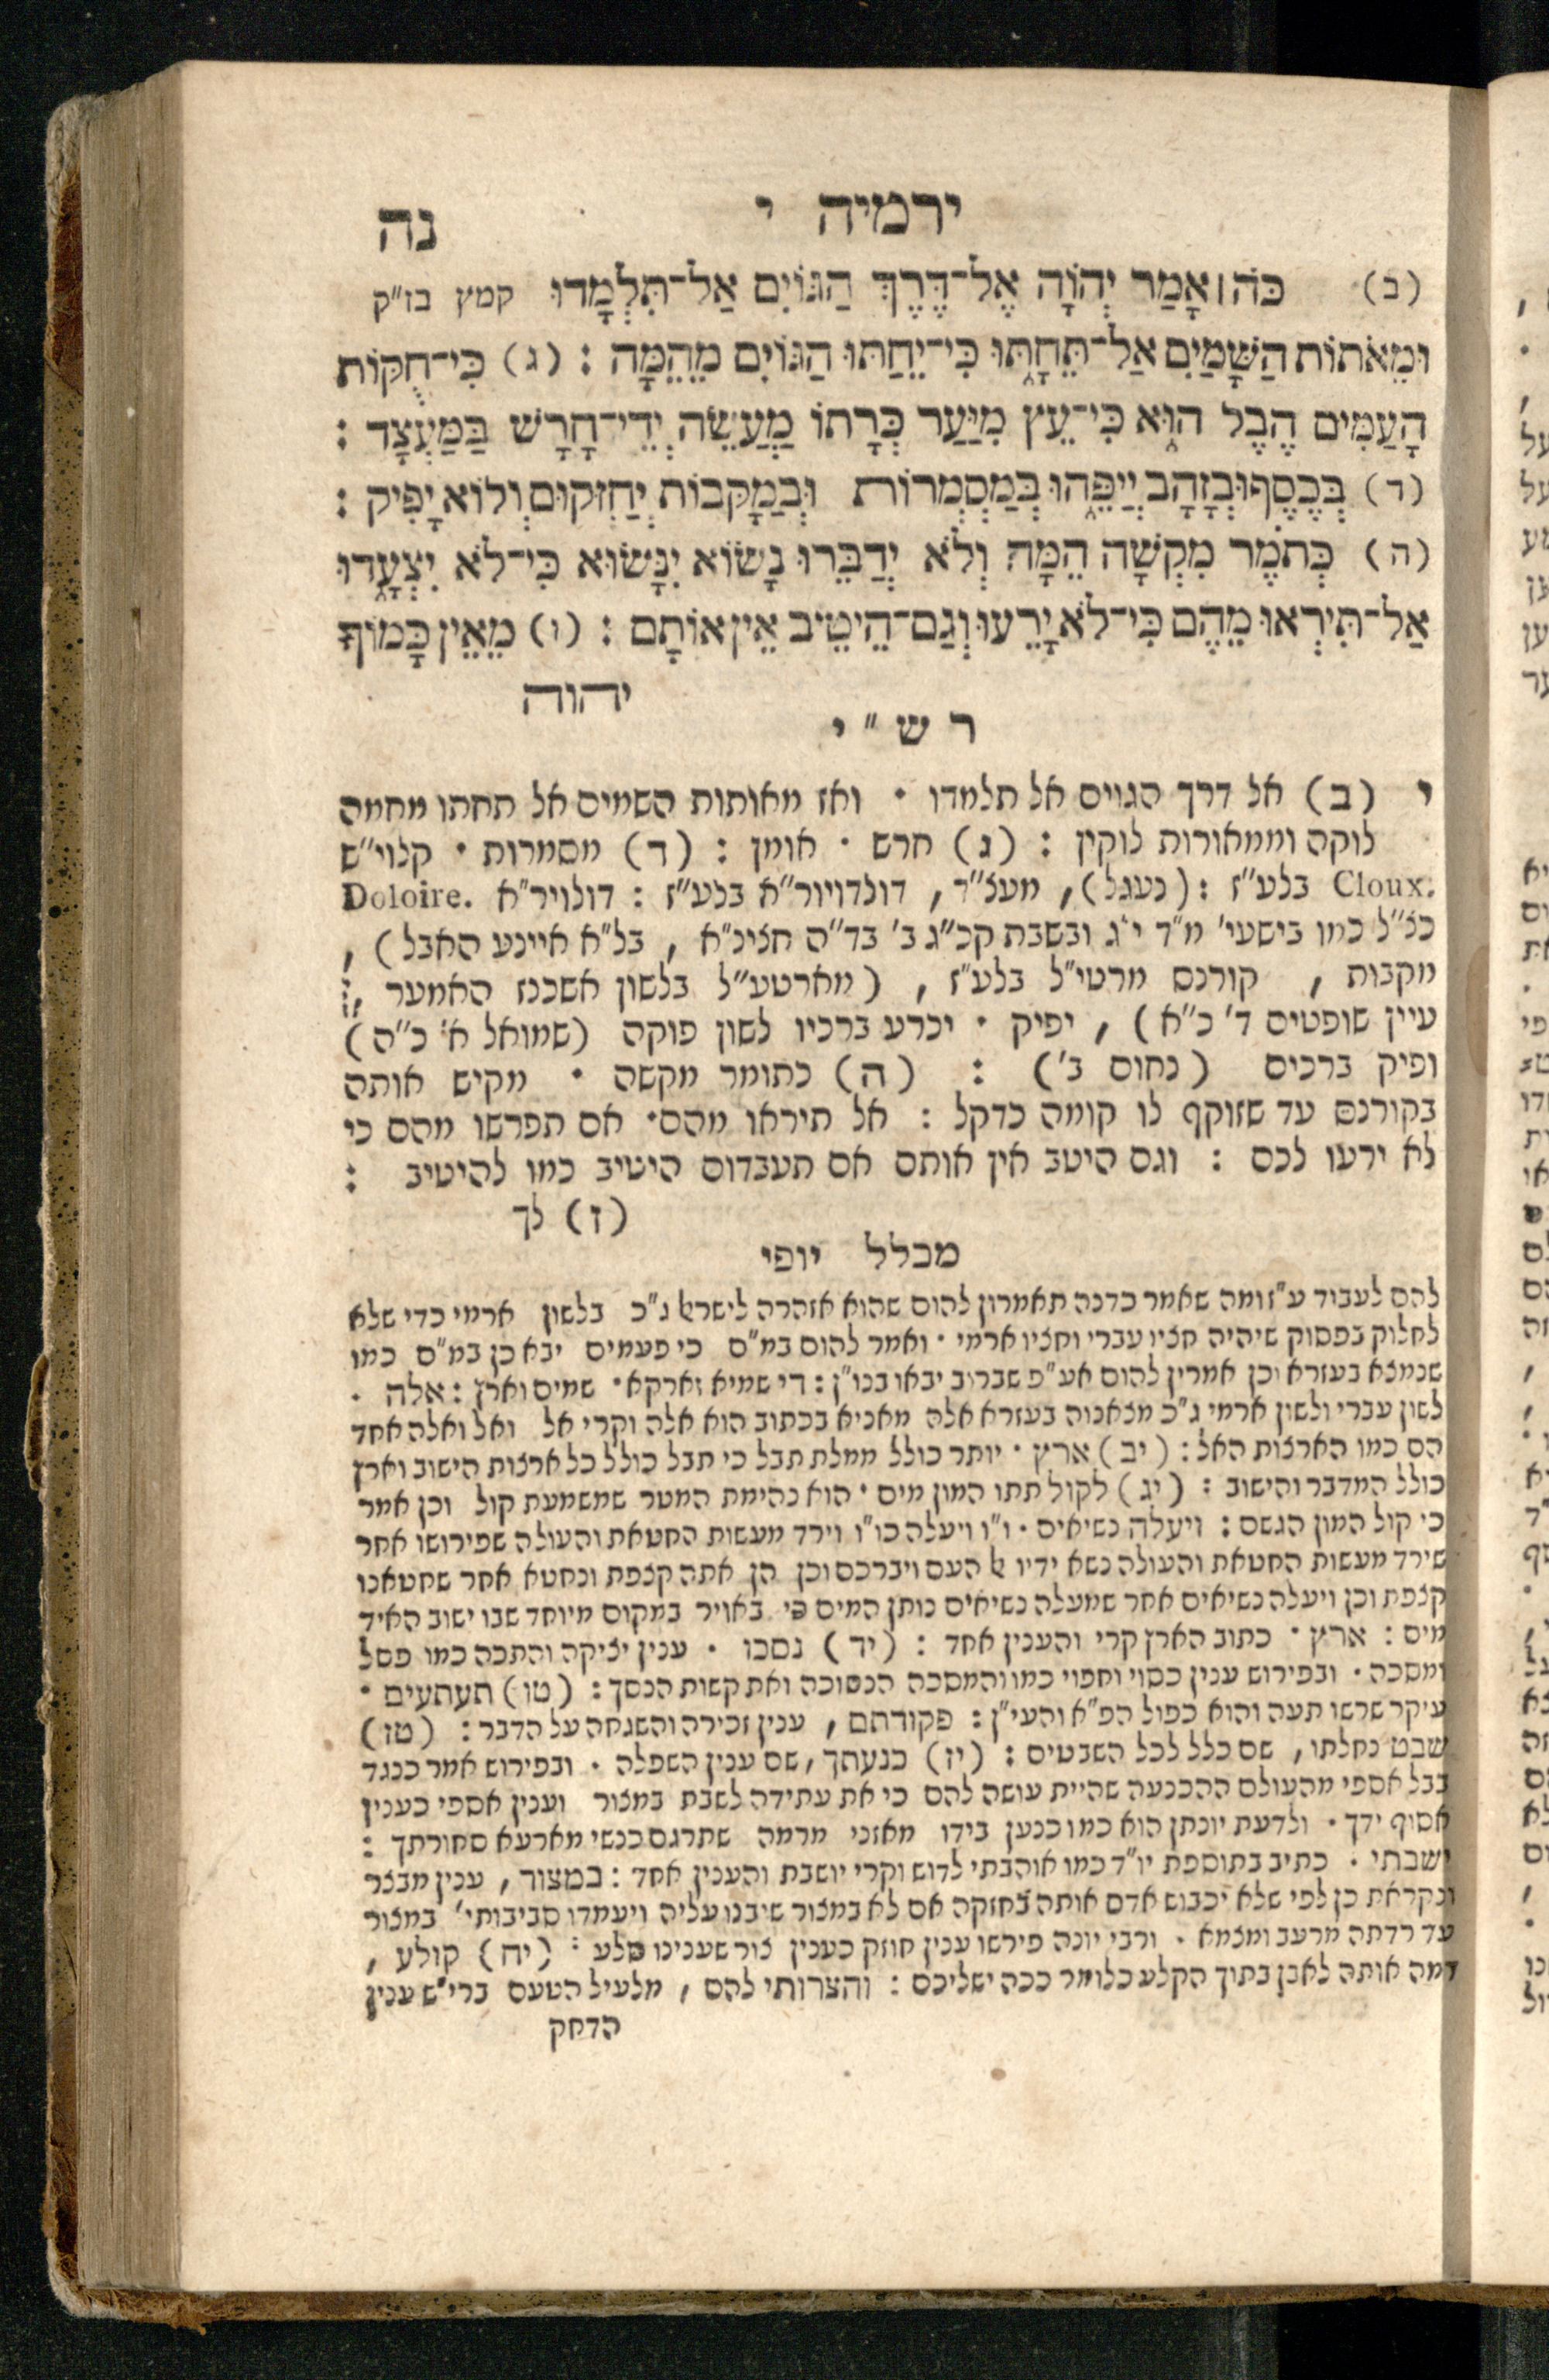 ירמיה י נה
(ב) כֹּה׀אָמַר יְהוָֹה אֶל־דֶּרֶךְ הַגּוֹיִם אַל־תִּלְמָדוּ קמץ בז"ק
וּמֵאֹתוֹת הַשָּׁמַיִם אַל־תֵּחָתּוּ כִּי־יֵחַתּוּ הַגּוֹיִם מֵהֵמָּה : (ג) כִּי־חֻקּוֹת
הָעַמִּים הֶבֶל הוּא כִּי־עֵץ מִיַּעַר כְּרָתוֹ מַעֲשֵׂה יְדֵי־חָרָשׁ בַּמַּעֲצָד :
(ד) בְּכֶסֶף וּבְזָהָב יְיַפֵּהוּ בְּמַסְמְרוֹת וּבְמַקָּבוֹת יְחַזְּקוּם וְלוֹא יָפִיק :
(ה) כְּתֹמֶר מִקְשָׁה הֵמָּה וְלֹא יְדַבֵּרוּ נָשׂוֹא יִנָּשׂוּא כִּי־לֹא יִצְעָדוּ
אַל־תִּירְאוּ מֵהֶם כִּי־לֹא יָרֵעוּ וְגַם־הֵיטֵיב אֵין אוֹתָם : (ו) מֵאֵין כָּמוֹךָ
יהוה
ר ש " י
י (ב) אל דרך הגוים אל תלמדו • ואז מאותות השמים אל תחתו מחמה
לוקה וממאורות לוקין : (ג) חרש • אומן : (ד) מסמרות • קלוי"ש
Cloux. בלע"ז : (נעגל), מעצ"ד, דולדויור"א בלע"ז : דולויר"א Doloire.
כצ"ל כמו בישעי' מ"ד י"ג ובשבת קכ"ג ב' בד"ה חצינ"א, בל"א איינע האבל),
מקבות, קורנס מרטי"ל בלע"ז, (מארטע"ל בלשון אשכנז האמער,
עיין שופטים ד' כ"א), יפיק • יכרע ברכיו לשון פוקה (שמואל א' כ"ה)
ופיק ברכים (נחום ב') : (ה) כתומר מקשה • מקיש אותה
בקורנס עד שזוקף לו קומה כדקל : אל תיראו מהם• אם תפרשו מהם כי
לא ירעו לכם : וגם היטב אין אותם אם תעבדום היטיב כמו להיטיב :
(ז) לך
מכלל יופי
להם לעבוד ע"ז ומה שאמר כדנה תאמרון להום שהוא אזהרה לישראל ג"כ בלשון ארמי כדי שלא
לחלוק בפסוק שיהיה חציו עברי וחציו ארמי • ואמר להום במ"ם כי פעמים יבא כן במ"ם כמו
שנמצא בעזרא וכן אמרין להום אע"פ שברוב יבאו בנו"ן : די שמיא וארקא• שמים וארץ : אלה •
לשון עברי ולשון ארמי ג"כ מצאנוה בעזרא אלה מאניא בכתוב הוא אלה וקרי אל ואל ואלה אחד
הם כמו הארצות האל : (יב) ארץ • יותר כולל ממלת תבל כי תבל כולל כל ארצות הישוב וארץ
כולל המדבר והישוב : (יג) לקול תתו המון מים • הוא נהימת המטר שמשמעת קול וכן אמר
כי קול המון הגשם : ויעלה נשיאים • וי"ו ויעלה כו"ו וירד מעשות החטאת והעולה שפירושו אחר
שירד מעשות החטאת והעולה נשא ידיו אל העם ויברכם וכן הן אתה קצפת ונחטא אחר שחטאנו
קצפת וכן ויעלה נשיאים אחר שמעלה נשיאים נותן המים כי באויר במקום מיוחד שבו ישוב האיד
מים : ארץ • כתוב הארץ קרי והענין אחד : (יד) נסכו • ענין יציקה והתכה כמו פסל
ומסכה • ובפירוש ענין כסוי וחפוי כמו והמסכה הנסוכה ואת קשות הנסך : (טו) תעתעים •
עיקר שרשו תעה והוא כפול הפ"א והעי"ן : פקודתם, ענין זכירה והשגחה על הדבר : (טז)
שבט נחלתו, שם כלל לכל השבטים : (יז) כנעתך, שם ענין השפלה • ובפירוש אמר כנגד
בבל אספי מהעולם ההכנעה שהיית עושה להם כי את עתידה לשבת במצור וענין אספי כענין
אסוף ידך • ולדעת יונתן הוא כמו כנען בידו מאזני מרמה שתרגם כנשי מארעא סחורתך :
ישבתי • כתיב בתוספת יו"ד כמו אוהבתי לדוש וקרי יושבת והענין אחד : במצור, ענין מבצר
ונקראת כן לפי שלא יכבוש אדם אותה בחזקה אם לא במצור שיבנו עליה ויעמדו סביבותי' במצור
עד רדתה מרעב ומצמא • ורבי יונה פירשו ענין חוזק כענין צור שענינו סלע : (יח) קולע,
דמה אותה לאבן בתוך הקלע כלומר ככה ישליכם : והצרותי להם, מלעיל הטעם ברי"ש ענין
הדחק